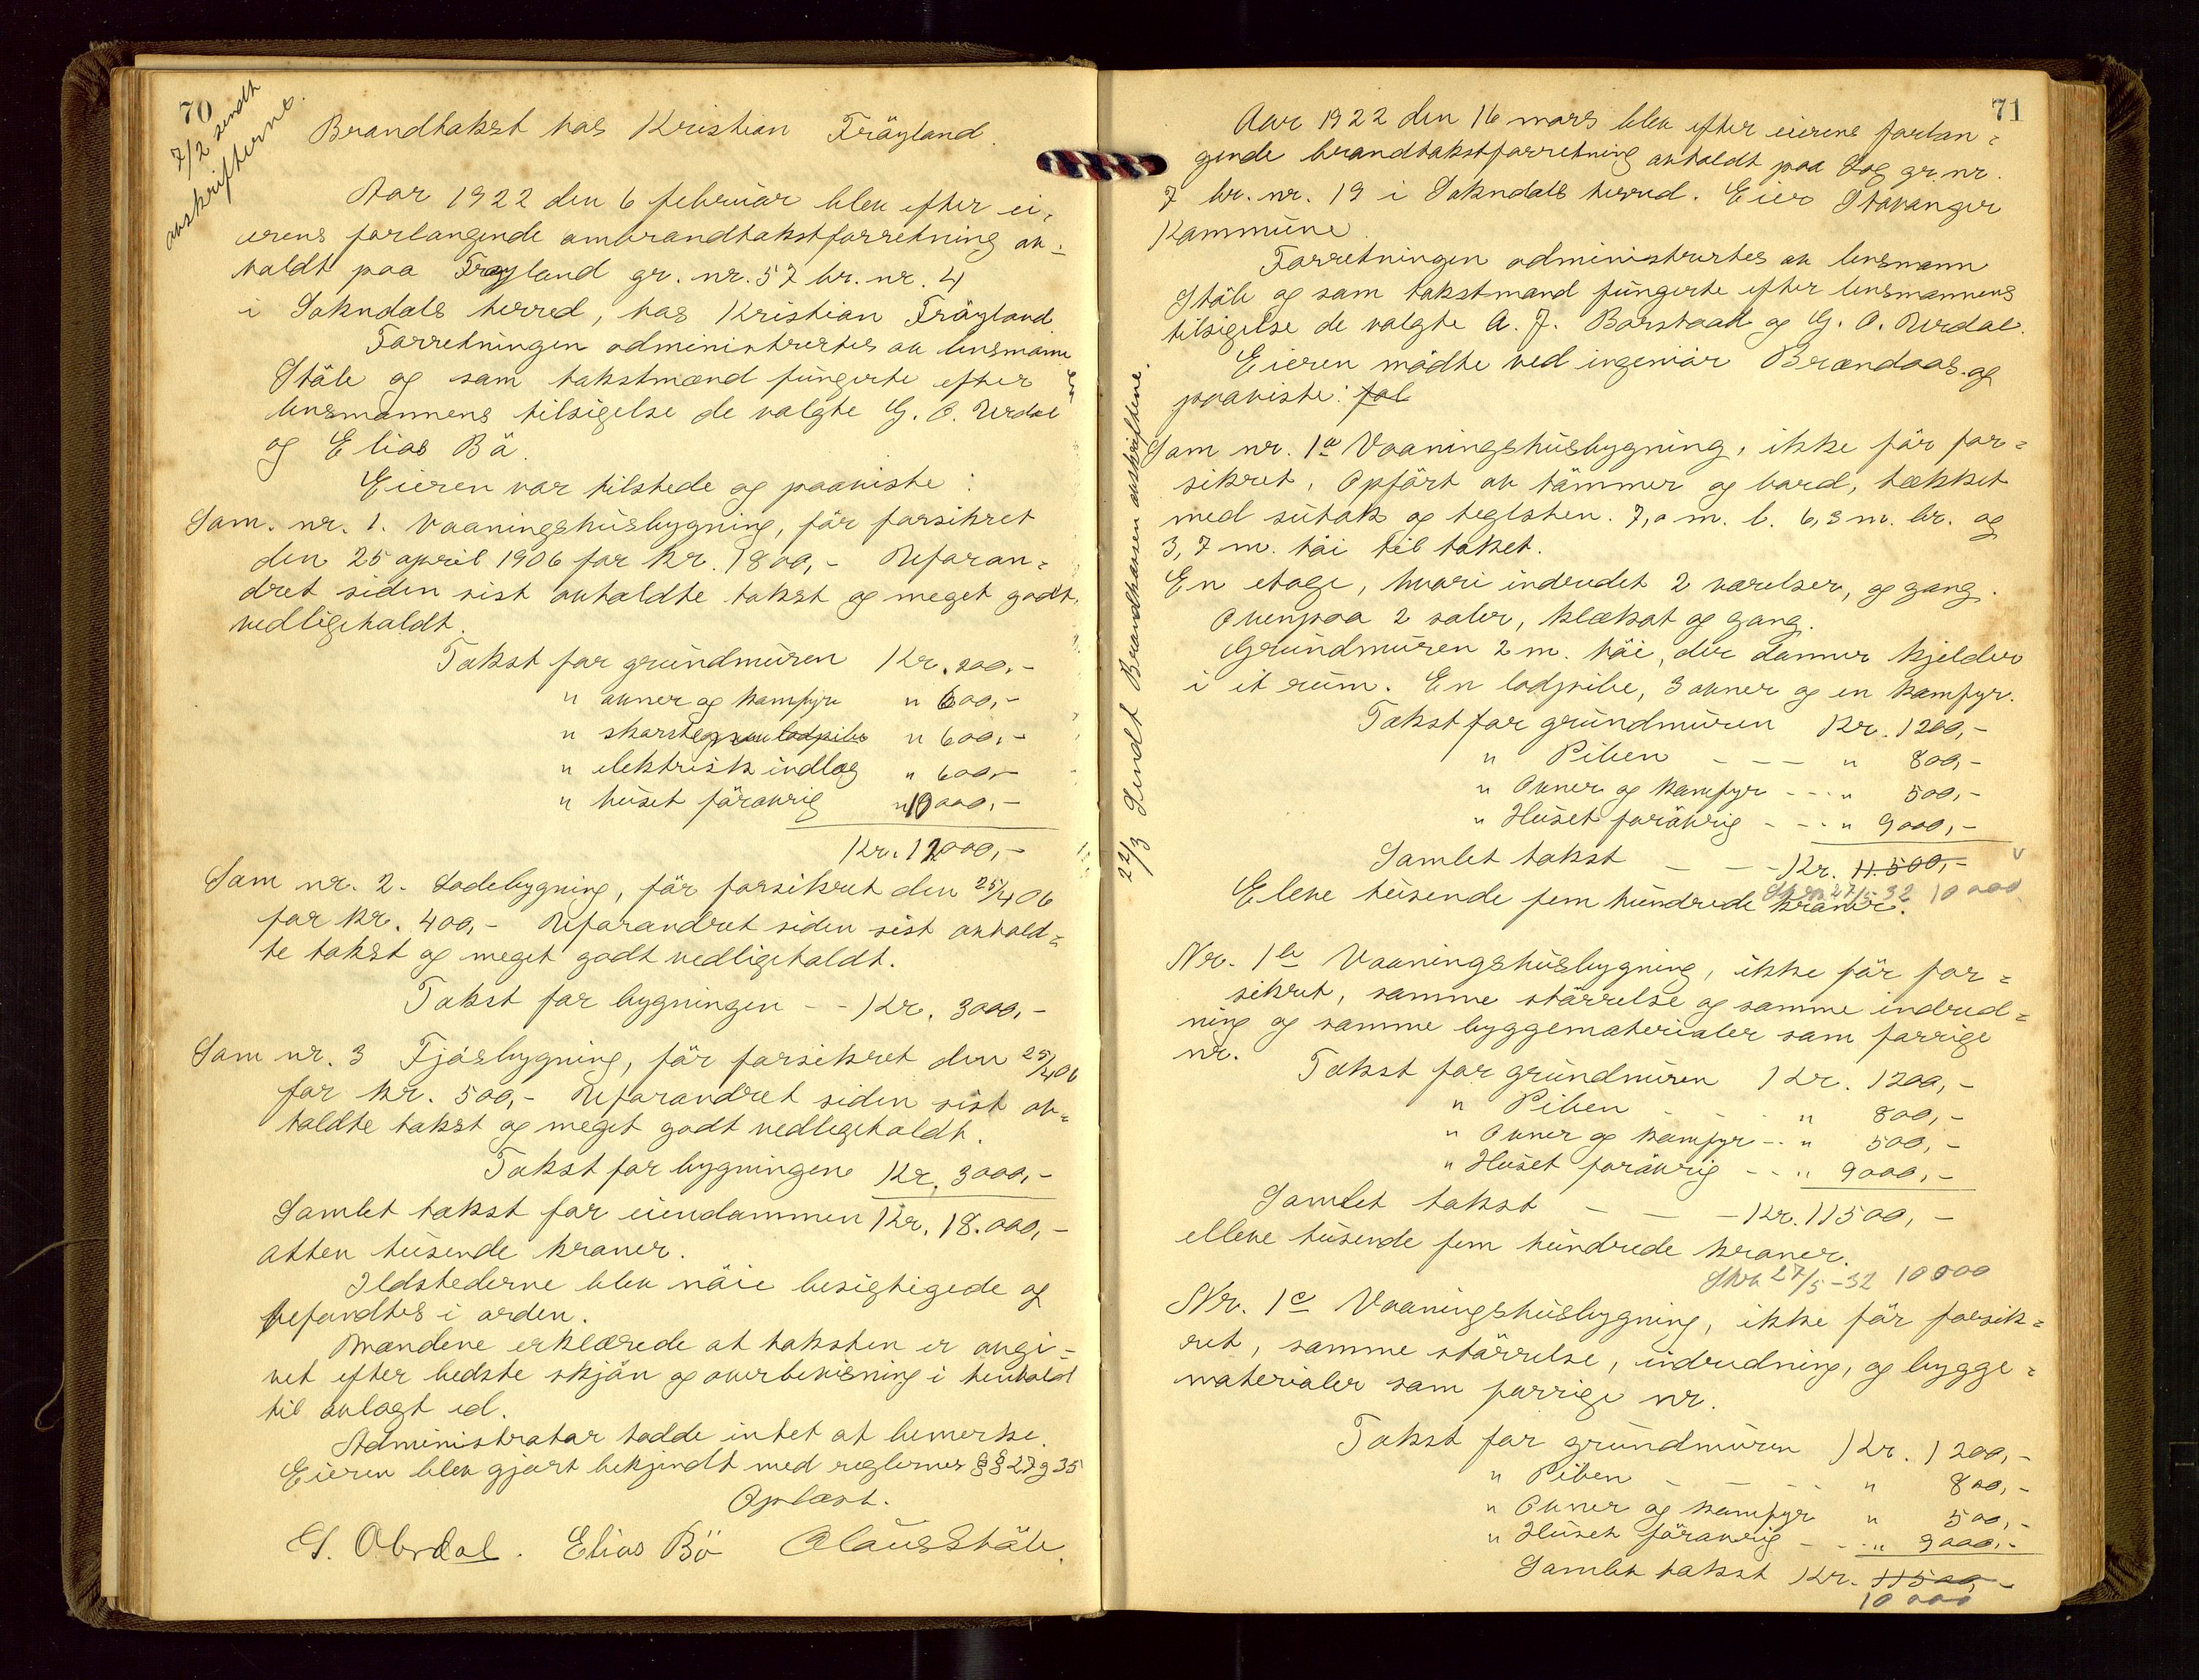 70
7/2 sendt
avskrifterne.
Brandtakst hos Kristian Fröyland.
Aar 1922 den 6 februar blev efter ei-
erens forlangende ombrandtakstforretning av-
holdt paa Fröyland gr. nr. 57 br. nr. 4
i Sokndals herred, hos Kristian Fröyland.
Forretningen administrertes av lensmann
Ståle og som takstmænd fungerte efter
lensmannens tilsigelse de valgte G. O. Urdal
og Elias Bö.
Eieren var tilstede og paaviste:
Som. nr. 1. Vaaningshusbygning, för forsikret
den 25 april 1906 for kr. 1800,- Uforan-
dret siden sist avholdte takst og meget godt
vedligeholdt.
Takst for grundmuren Kr. 200,-
" ovner og komfyr " 600,-
" skorsten " 600,-
" elektrisk indlæg " 600,-
" huset förövrig " 10000,-
Kr. 12000,-
Som nr. 2. Lodebygning, för forsikret den 25/4 06
for kr. 400,- Uforandret siden sist avhold-
te takst og meget godt vedligeholdt.
Takst for bygningen - - Kr. 3000,-
Som nr. 3 Fjösbygning, för forsikret den 25/4 06
for kr. 500,- Uforandret siden sist av-
holdte takst og meget godt vedligeholdt.
Takst for bygningen Kr. 3000,-
Samlet takst for eiendommen Kr. 18.000,-
atten tusende kroner.
Ildstederne blev nöie besigtigede og
befandtes i orden.
Mændene erklærede at taksten er avgi-
vet efter bedste skjön og overbevisning i henhold
til avlagt ed.
Administrator hadde intet at bemerke.
Eieren blev gjort bekjendt med reglernes §§ 27 g 35
Oplæst.
G. O. Urdal. Elias Bö Olaus Ståle.
71
Aar 1922 den 16 mars blev efter eierens forlan-
gende brandtakstforretning avholdt paa Log gr. nr.
7 br. nr. 19 i Sokndals herred. Eier Stavanger
Kommune.
Forretningen administrertes av lensmann
Ståle og som takstmænd fungerte efter lensmannens
tilsigelse de valgte A. J. Barstad og G. O. Urdal.
Eieren mödte ved ingeniör Brændaas og
paaviste: fol
22/3 Sendt Brandkassen avskriftene.
Som nr. 1a Vaaningshusbygning, ikke för for-
sikret. Opfört av tömmer og bord, tækket
med sutak og teglsten. 7,0 m. l. 6,3 m. br. og
3,7 m. höi til taket.
En etage, hvori indredet 2 værelser, og gang.
Ovenpaa 2 saler, klækot og gang.
Grundmuren 2 m. höi, der danner kjelder
i et rum. En lodpibe, 3 ovner og en komfyr.
Takst for grundmuren Kr. 1200,-
" Piben - - - " 800,-
" Ovner og komfyr - - - " 500,-
" Huset forövrig - - - " 9000,-
Samlet takst - - - Kr. 11.500,-
Skr. 27/5-32 10000
Eleve tusende fem hundrede kroner.
Nr. 1b Vaaningshusbygning, ikke för for-
sikret, samme störrelse og samme indred-
ning og samme byggematerialer som forrige
nr.
Takst for grundmuren Kr. 1200,-
" Piben - - - " 800,-
" Ovner og komfyr - - " 500,-
" Huset forövrig - - " 9000,-
Samlet takst - - - Kr. 11500,-
elleve tusende fem hundrede kroner.
Skr. 27/5-32 10000
Nr. 1c Vaaningshusbygning, ikke för forsik-
ret, samme störrelse, indredning, og bygge-
materialer som forrige nr.
Takst for grundmuren Kr. 1200,-
" Piben - - - " 800,-
" Ovner og komfyr " 500,-
" Huset förövrig - - " 9000,-
Samlet takst Kr. 11500,-
10000